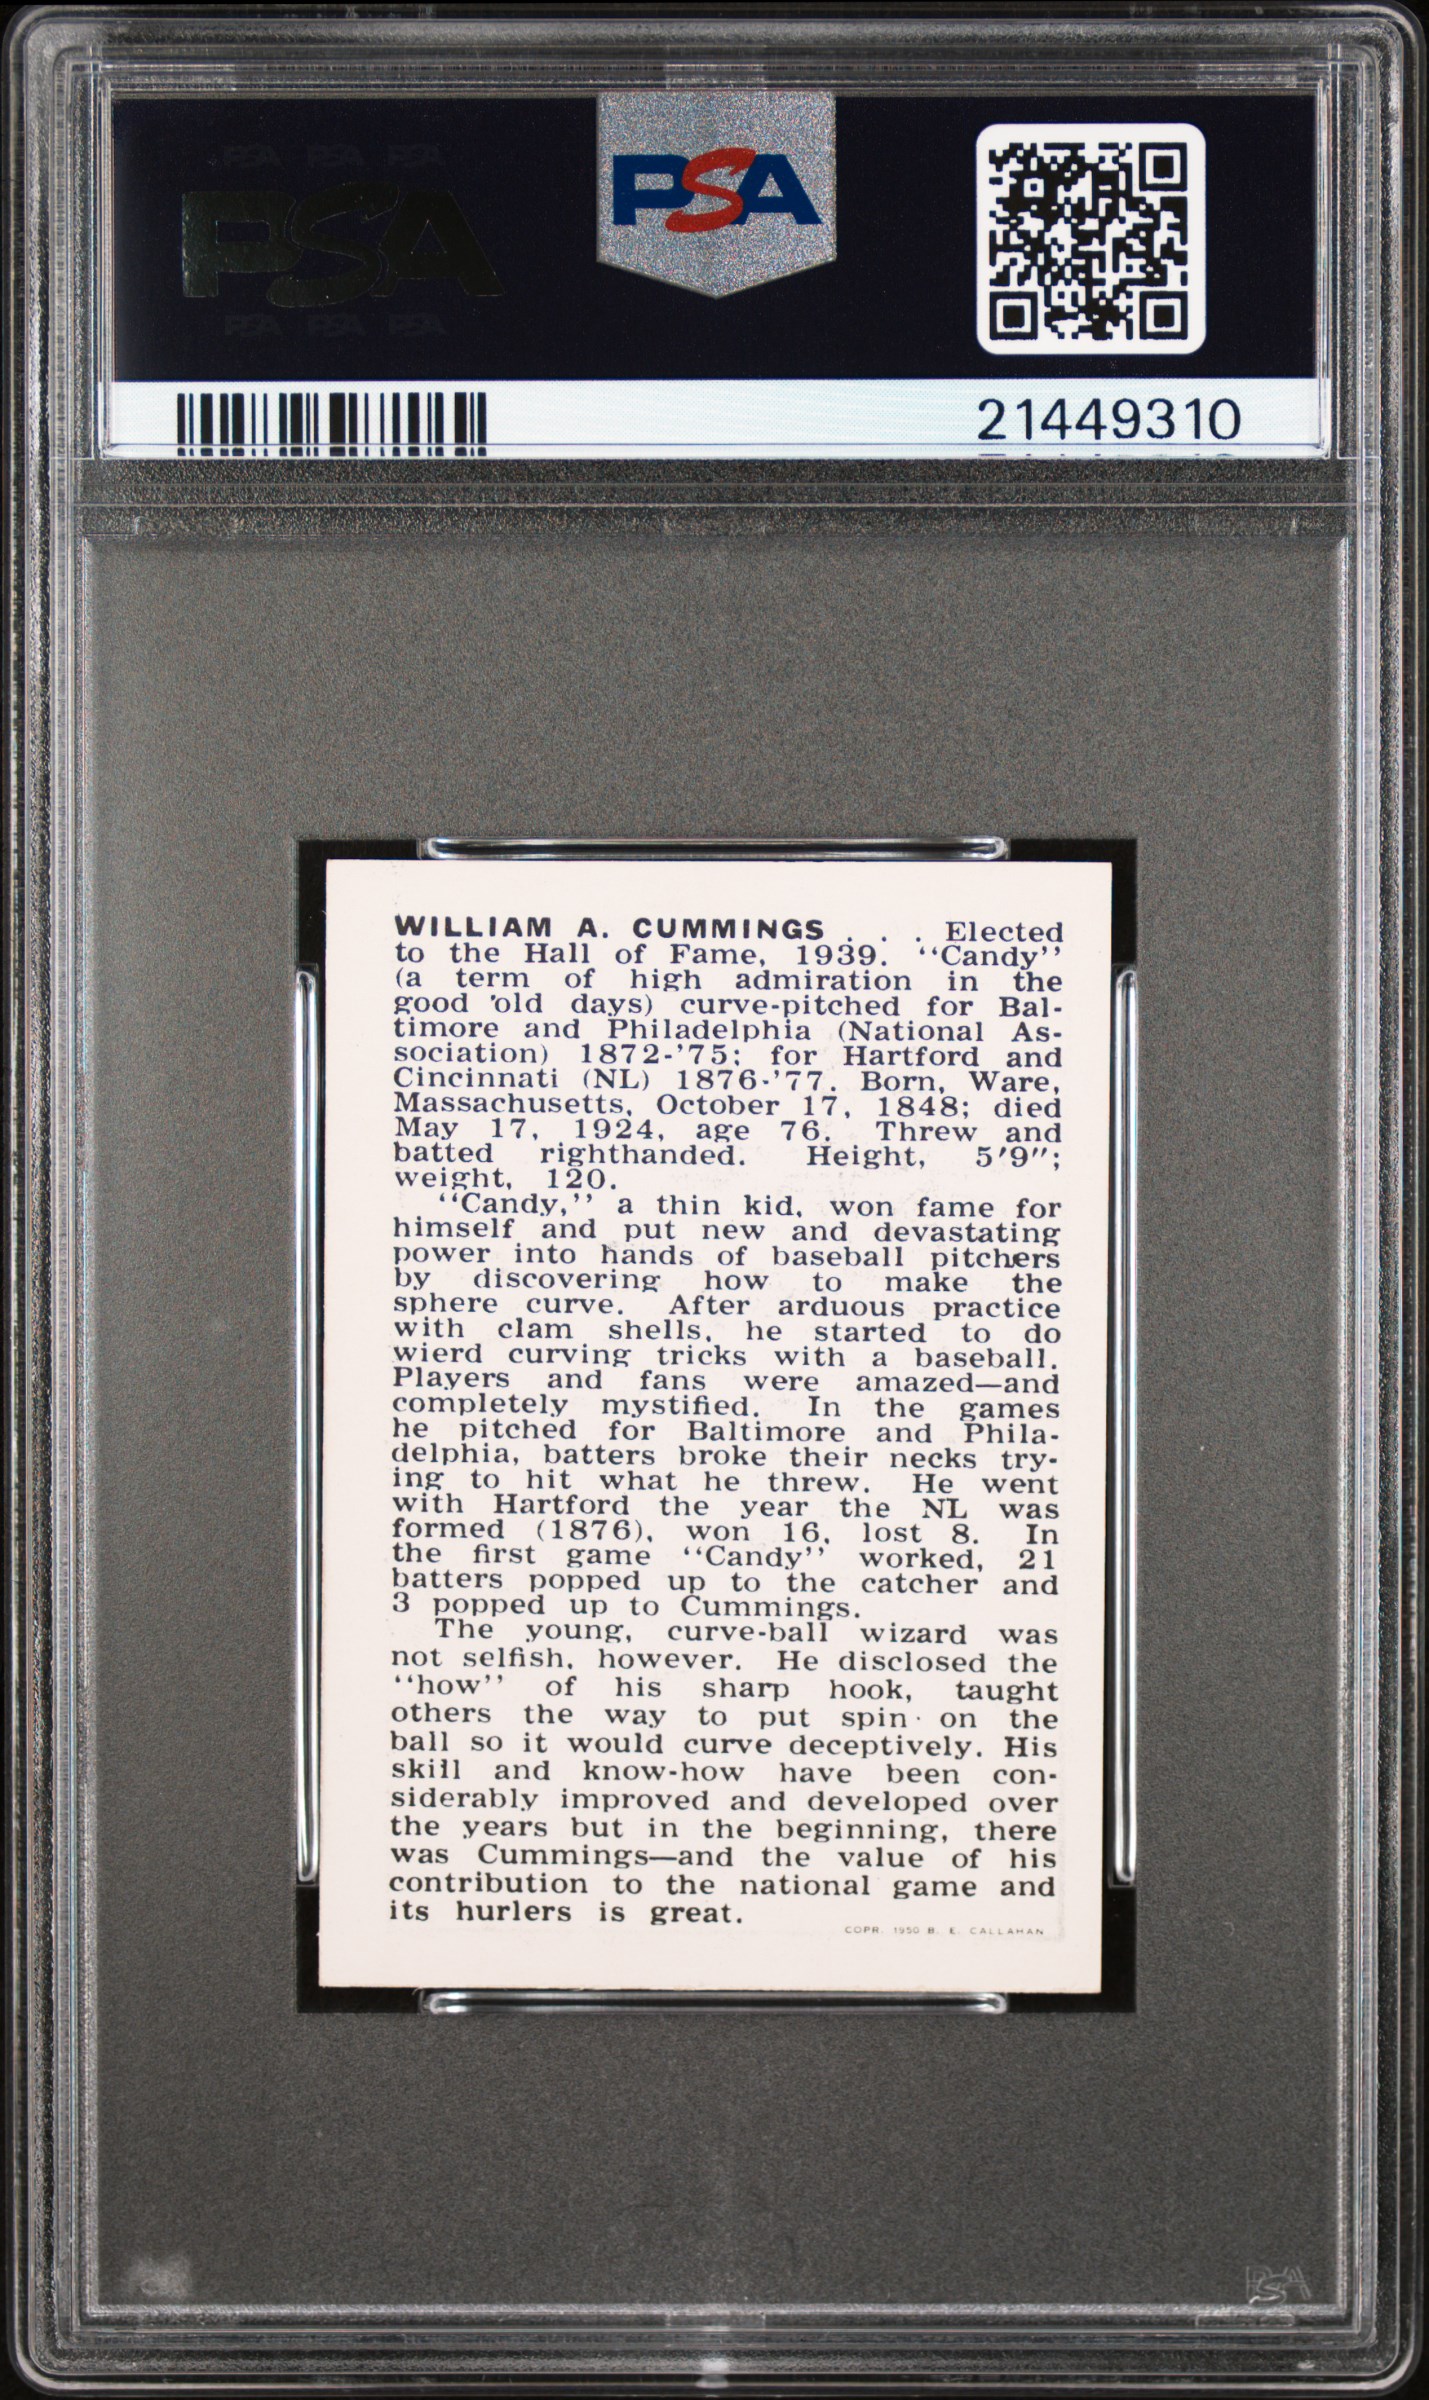 PSA PSA PSA
PSA
PSA PSA PSA
PSA
21449310
WILLIAM A. CUMMINGS . . . Elected
to the Hall of Fame, 1939. “Candy”
(a term of high admiration in the
good 'old days) curve-pitched for Bal-
timore and Philadelphia (National As-
sociation) 1872-'75; for Hartford and
Cincinnati (NL) 1876-'77. Born, Ware,
Massachusetts, October 17, 1848; died
May 17, 1924, age 76. Threw and
batted righthanded. Height, 5'9";
weight, 120.
“Candy,” a thin kid, won fame for
himself and put new and devastating
power into hands of baseball pitchers
by discovering how to make the
sphere curve. After arduous practice
with clam shells, he started to do
wierd curving tricks with a baseball.
Players and fans were amazed—and
completely mystified. In the games
he pitched for Baltimore and Phila-
delphia, batters broke their necks try-
ing to hit what he threw. He went
with Hartford the year the NL was
formed (1876), won 16, lost 8. In
the first game “Candy” worked, 21
batters popped up to the catcher and
3 popped up to Cummings.
The young, curve-ball wizard was
not selfish, however. He disclosed the
“how” of his sharp hook, taught
others the way to put spin on the
ball so it would curve deceptively. His
skill and know-how have been con-
siderably improved and developed over
the years but in the beginning, there
was Cummings—and the value of his
contribution to the national game and
its hurlers is great.
COPR. 1950 B. E. CALLAHAN
PSA